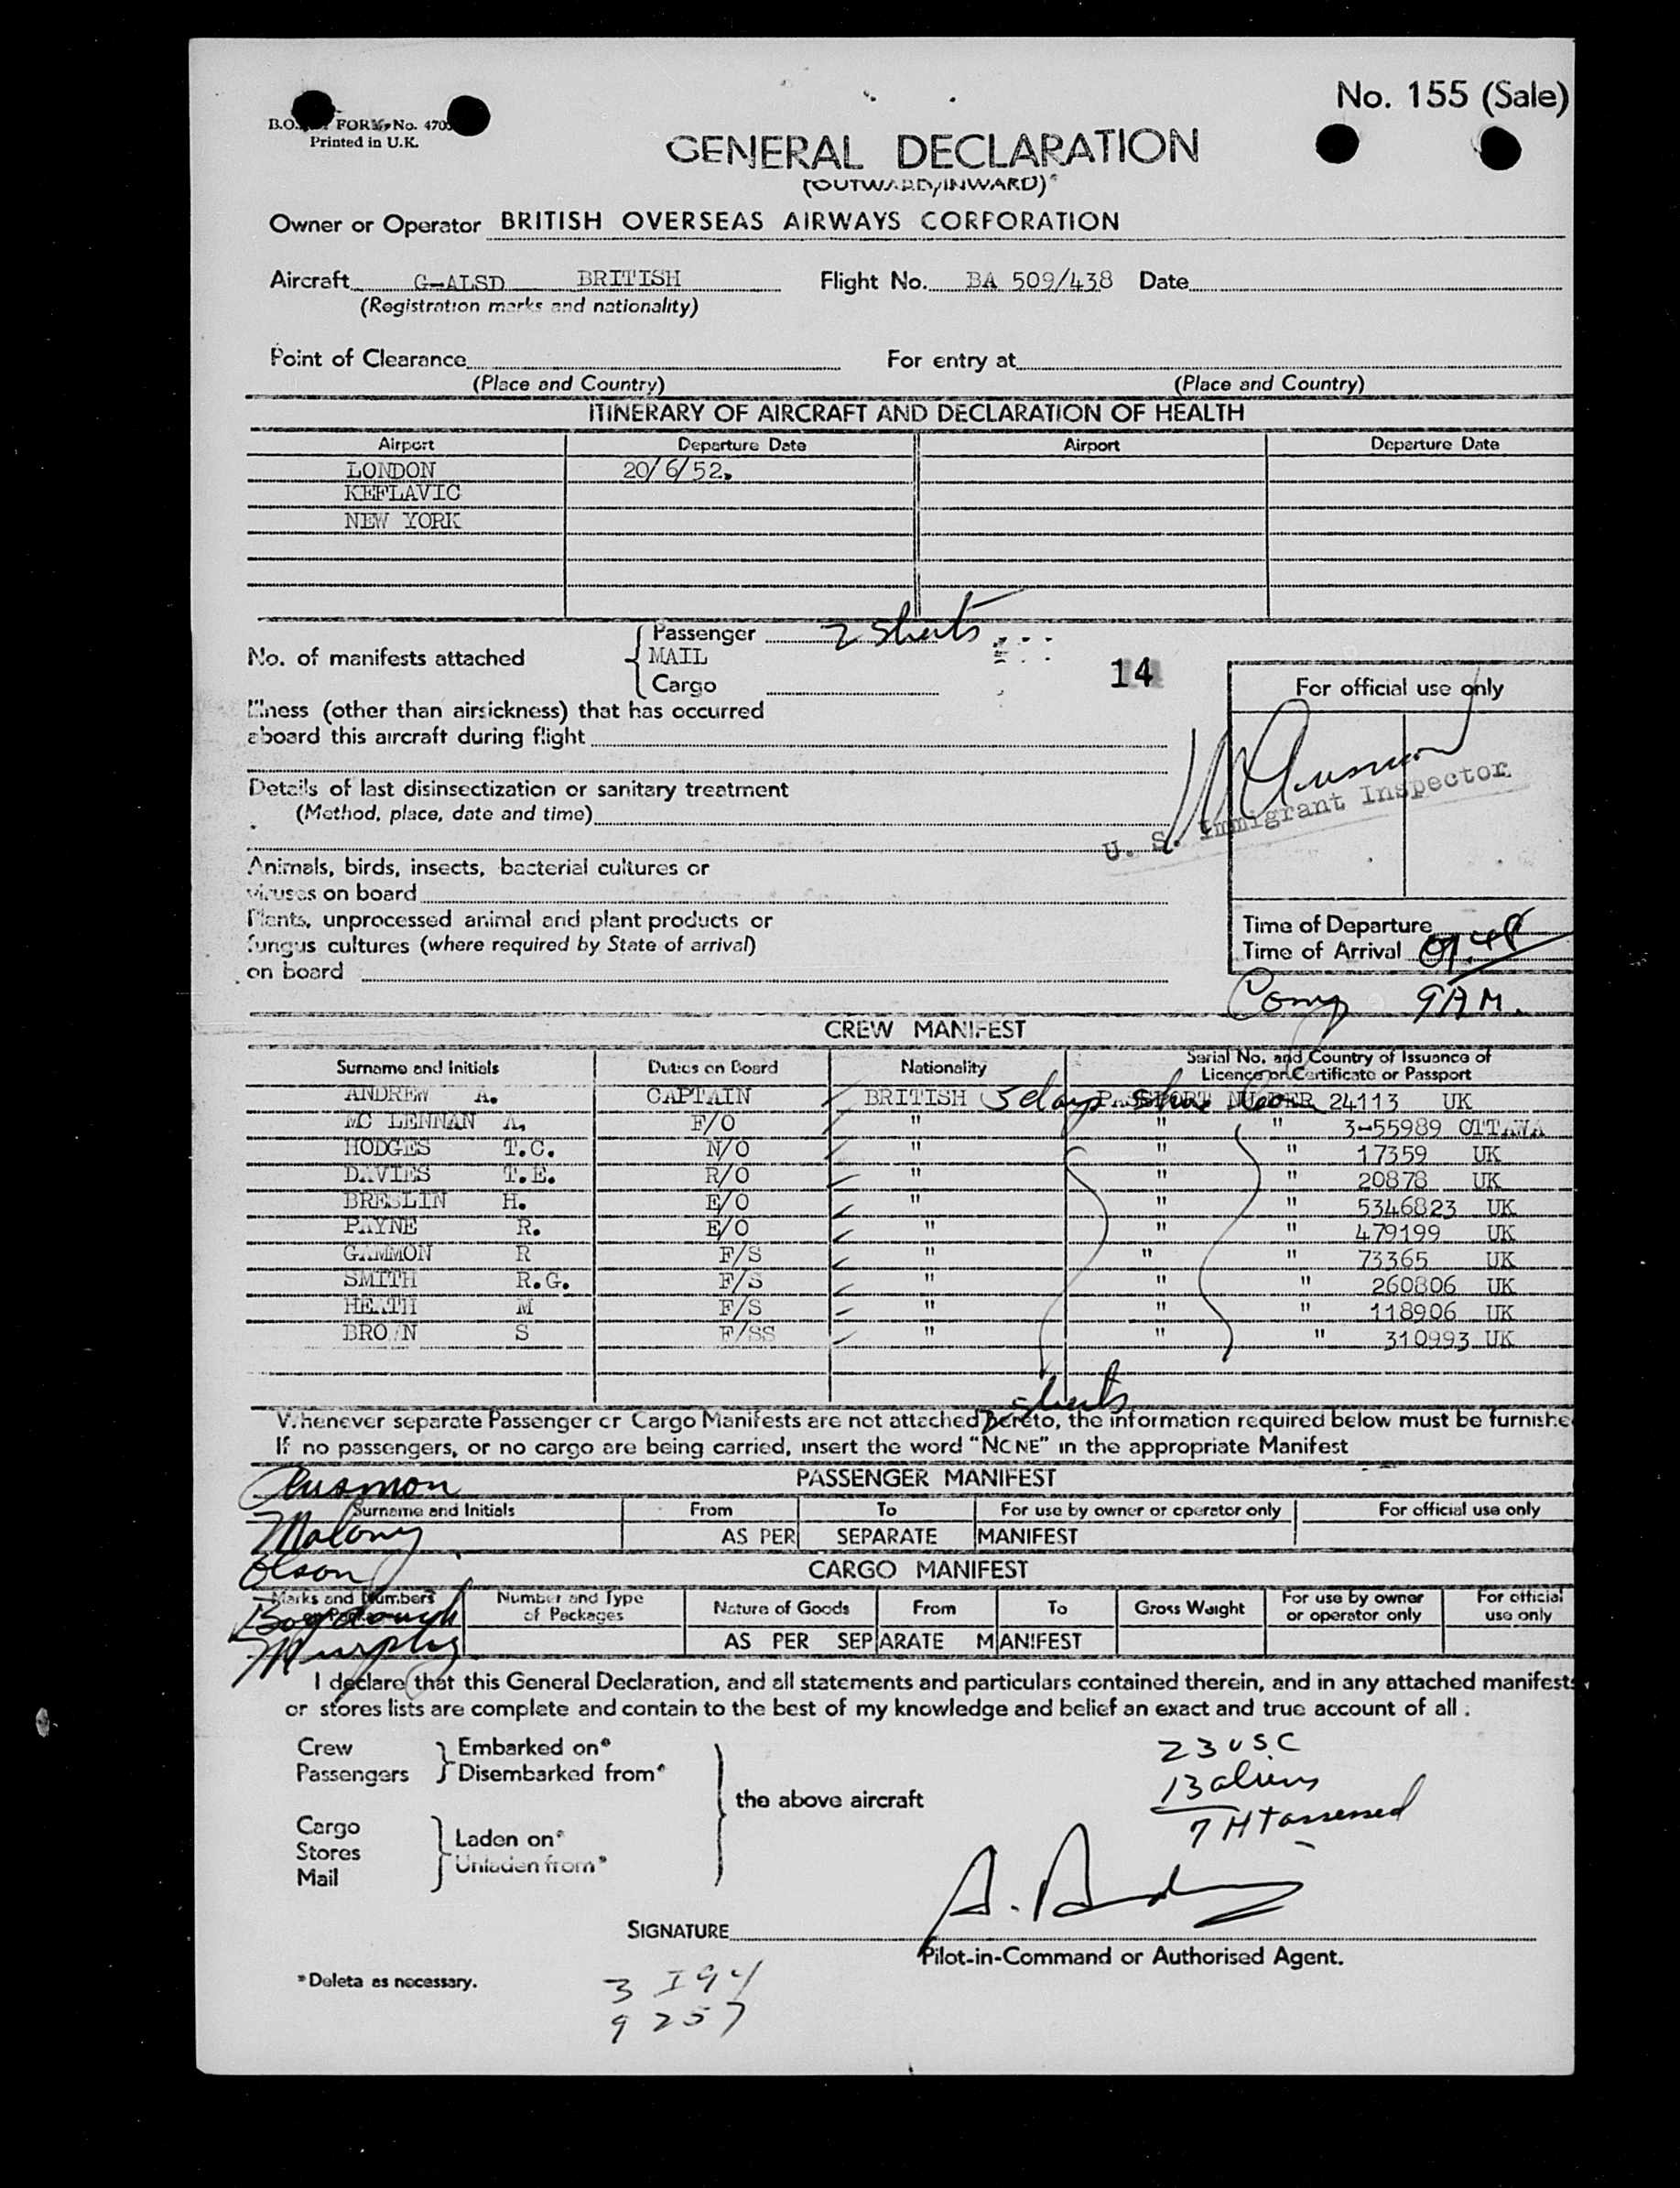 No. 155 (Sale)
FORM No. 470
Printed in U.K.
GENERAL DECLARATION
(OUTWARD/INWARD)*
Owner or Operator BRITISH OVERSEAS AIRWAYS CORPORATION
Aircraft G-ALSD BRITISH Flight No. BA 509/438 Date
(Registration marks and nationality)
Point of Clearance For entry at
(Place and Country) (Place and Country)
ITINERARY OF AIRCRAFT AND DECLARATION OF HEALTH
Airport Departure Date Airport Departure Date
LONDON 20/6/52.
KEFLAVIC
NEW YORK
Passenger 2 sheets
No. of manifests attached MAIL
Cargo
14
For official use only
Illness (other than airsickness) that has occurred
aboard this aircraft during flight
Details of last disinsectization or sanitary treatment
(Method, place, date and time)
U. S. Immigrant Inspector
Animals, birds, insects, bacterial cultures or
viruses on board
Plants, unprocessed animal and plant products or
fungus cultures (where required by State of arrival)
on board
Time of Departure
Time of Arrival 09.48
9 AM.
CREW MANIFEST
Surname and Initials Duties on Board Nationality Serial No. and Country of Issuance of
Licence or Certificate or Passport
ANDREW A. CAPTAIN BRITISH 5 days PASSPORT NUMBER 24113 UK
MC LENNAN A. F/O " " " 3-55989 OTTAWA
HODGES T.C. N/O " " " 17359 UK
DAVIES T.E. R/O " " " 20878 UK
BRESLIN H. E/O " " " 5346823 UK
PAYNE R. E/O " " " 479199 UK
GAMMON R F/S " " " 73365 UK
SMITH R.G. F/S " " " 260806 UK
HEATH M F/S " " " 118906 UK
BROWN S F/SS " " " 310993 UK
sheets
Whenever separate Passenger or Cargo Manifests are not attached hereto, the information required below must be furnishe
If no passengers, or no cargo are being carried, insert the word "NONE" in the appropriate Manifest
PASSENGER MANIFEST
Surname and Initials From To For use by owner or operator only For official use only
AS PER SEPARATE MANIFEST
Malony
Olson
CARGO MANIFEST
Marks and Numbers Number and Type of Packages Nature of Goods From To Gross Weight For use by owner or operator only For official use only
AS PER SEPARATE MANIFEST
Murphy
I declare that this General Declaration, and all statements and particulars contained therein, and in any attached manifests
or stores lists are complete and contain to the best of my knowledge and belief an exact and true account of all :
Crew Embarked on*
Passengers Disembarked from*
the above aircraft
Cargo
Stores Laden on*
Mail Unladen from*
23 USC
13 aliens
7 HT assessed
SIGNATURE
Pilot-in-Command or Authorised Agent.
*Delete as necessary.
3 I94
9 257